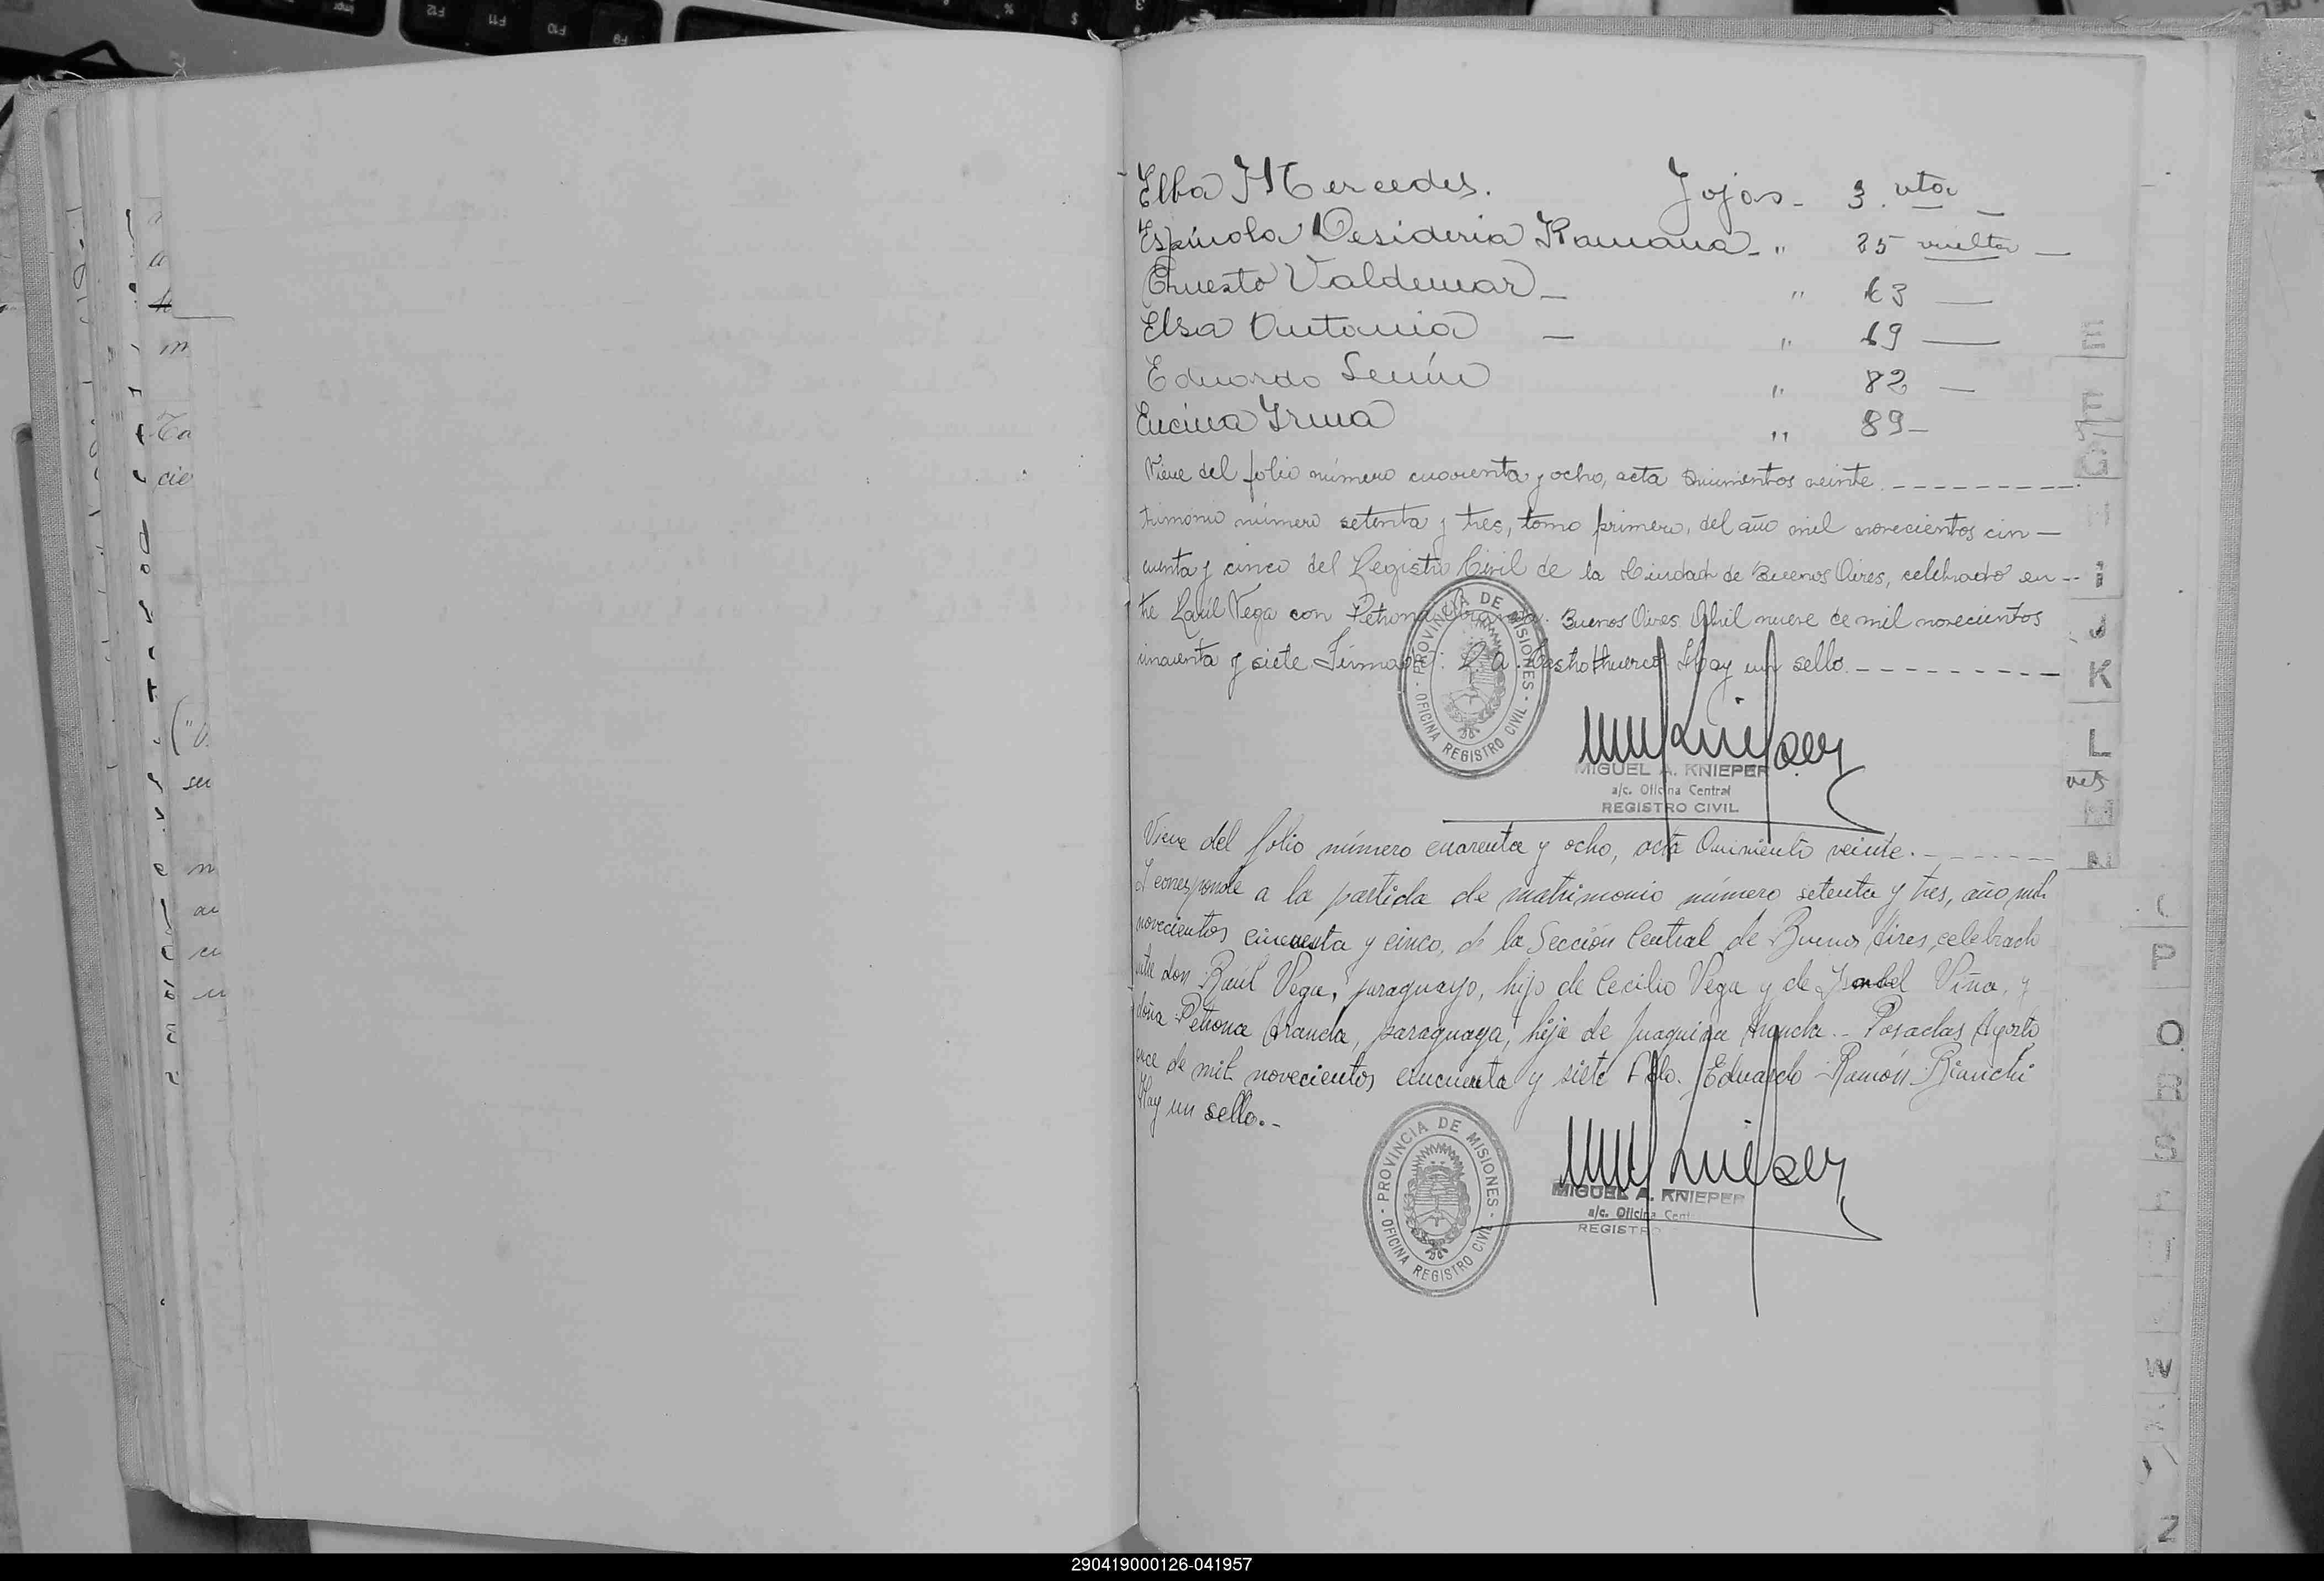 Elba Mercedes. Fojas - 3. vta
Espínola Desideria Ramona - " 25 vuelta
Ernesto Valdemar - " 63
Elsa Antonia - " 69
Eduardo Lenín " 82
Encina Irma " 89 -
Viene del folio número cuarenta y ocho, acta Quinientos veinte.
trimonio número setenta y tres, tomo primero, del año mil novecientos cin-
cuenta y cinco del Registro Civil de la Ciudad de Buenos Aires, celebrado en-
tre Raúl Vega con Petrona Aranda. Buenos Aires Abril nueve de mil novecientos
cincuenta y siete Firmado: Hay un sello.
PROVINCIA DE MISIONES
OFICINA REGISTRO CIVIL
MIGUEL A. KNIEPER
a/c. Oficina Central
REGISTRO CIVIL
Viene del folio número cuarenta y ocho, acta Quiniento veinte.-
Y corresponde a la partida de matrimonio número setenta y tres, año mil
novecientos cincuenta y cinco, de la Sección Central de Buenos Aires, celebrado
entre don Raúl Vega, paraguayo, hijo de Cecilio Vega y de Isabel Viña, y
doña Petrona Aranda, paraguaya, hija de Juaquina Aranda.- Posadas Agosto
once de mil novecientos cincuenta y siete Fdo. Eduardo Ramón Bianchi
Hay un sello.-
PROVINCIA DE MISIONES
OFICINA REGISTRO CIVIL
MIGUEL A. KNIEPER
a/c. Oficina Cent
REGISTRO
E
F
G
H
I
J
K
L
M
N
P
Q
R
S
W
Z
290419000126-041957